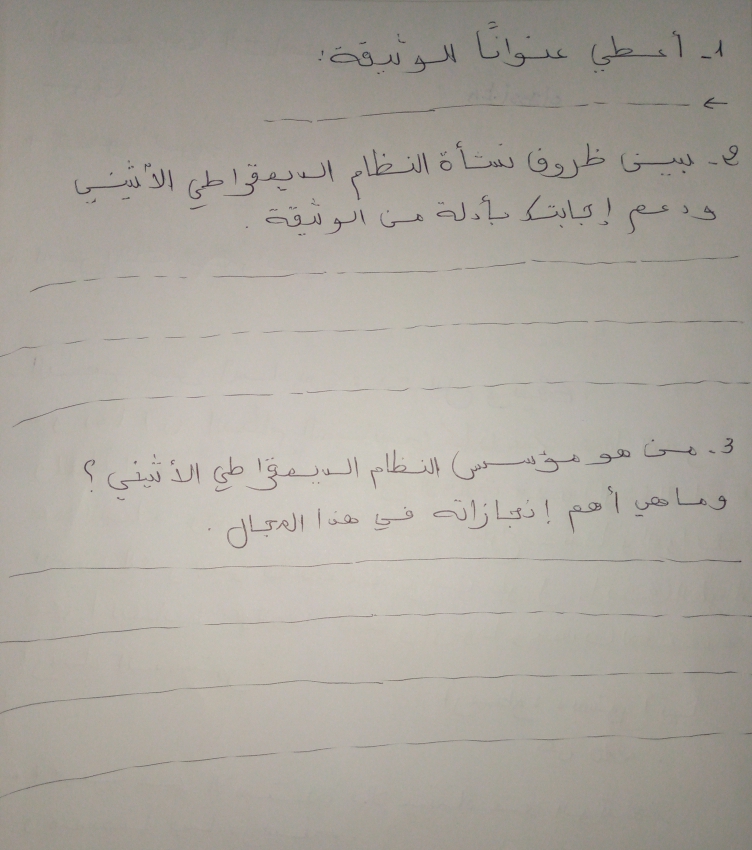 1- أعطي عنوانًا للوثيقة:
←
2- بين ظروف نشأة النظام الديمقراطي الأثيني
ودعم إجابتك بأدلة من الوثيقة.
3- من هو مؤسس النظام الديمقراطي الأثيني؟
وماهي أهم إنجازاته في هذا المجال.